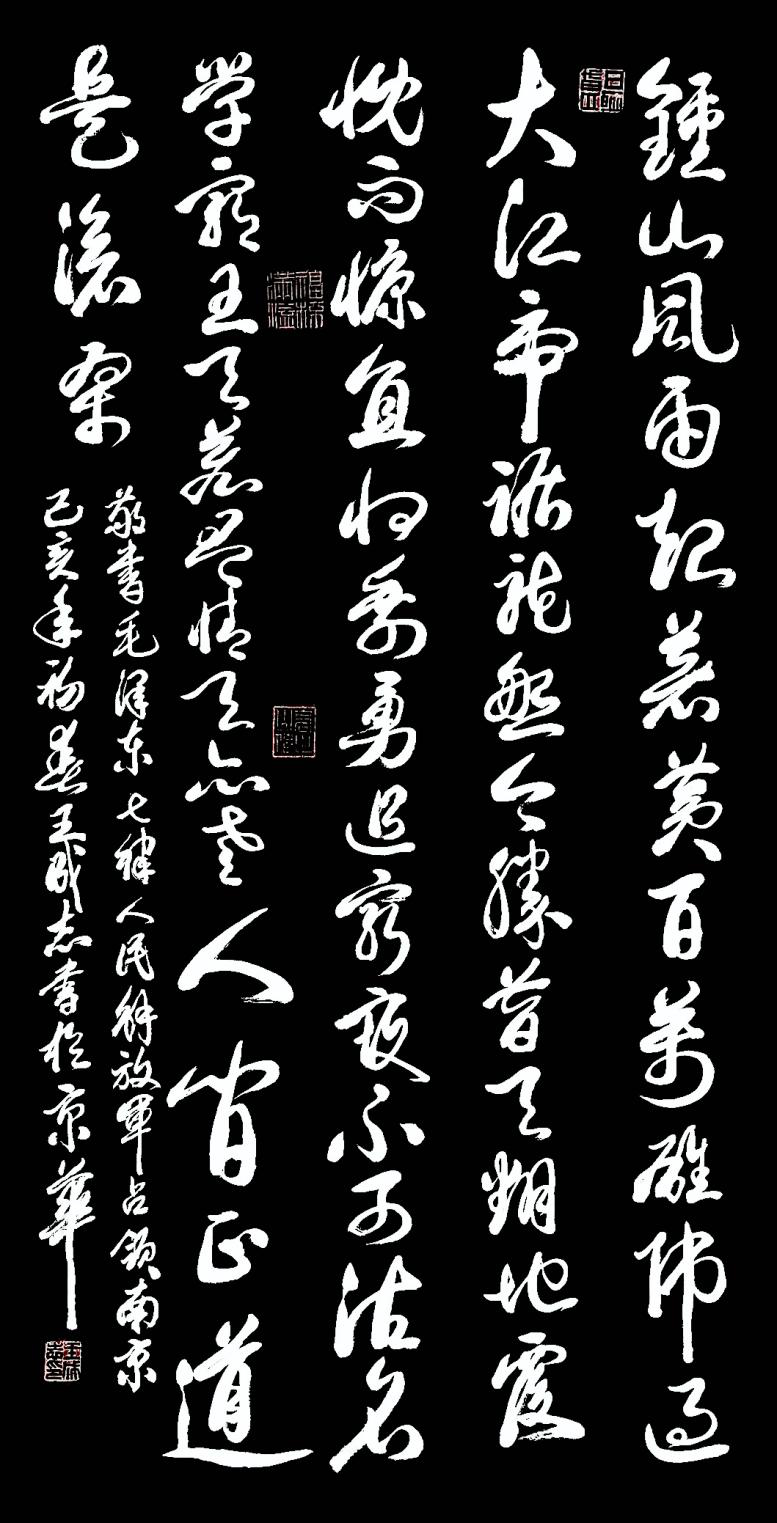 鍾山風雨起蒼黄百萬雄师過
大江虎踞龍盤今勝昔天翻地覆
慨而慷宜将剩勇追窮寇不可沽名
学霸王天若有情天亦老人间正道
是滄桑
敬書毛澤东七律人民解放軍占領南京
己亥年初春王成志書於京華